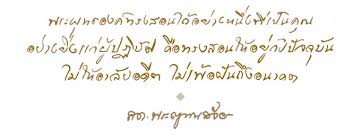 พระพุทธองค์ทรงสอนไว้อย่างหนึ่งที่เป็นคุณ
อย่างยิ่งแก่ผู้ปฏิบัติ คือทรงสอนให้อยู่กับปัจจุบัน
ไม่ให้อาลัยอดีต ไม่เพ้อฝันถึงอนาคต
สมเด็จพระญาณสังวร